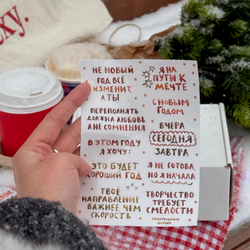 ky.
НЕ НОВЫЙ
ГОД ВСЁ
ИЗМЕНИТ,
А ТЫ
ПЕРЕПОЛНЯТЬ
ДОЛЖНА ЛЮБОВЬ
А НЕ СОМНЕНИЯ
В ЭТОМ ГОДУ
Я ХОЧУ:
ЭТО БУДЕТ
ХОРОШИЙ ГОД
ТВОЁ
НАПРАВЛЕНИЕ
ВАЖНЕЕ, ЧЕМ
СКОРОСТЬ
Я НА
ПУТИ К
МЕЧТЕ
С НОВЫМ
ГОДОМ
ВЧЕРА
СЕГОДНЯ
ЗАВТРА
Я НЕ ГОТОВА
НО Я НАЧАЛА
ТВОРЧЕСТВО
ТРЕБУЕТ
СМЕЛОСТИ